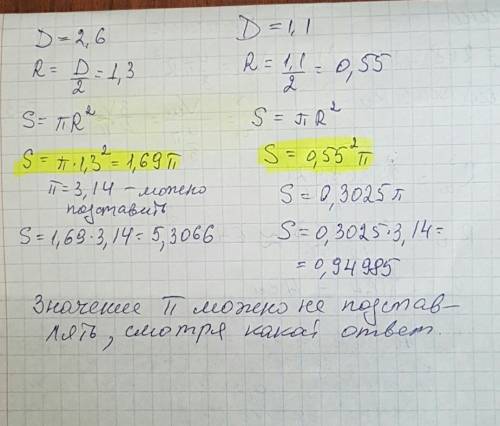 D = 2,6
R = D/2 = 1,3
S = πR²
S = π·1,3² = 1,69π
π = 3,14 – можно
подставить
S = 1,69·3,14 = 5,3066
D = 1,1
R = 1,1/2 = 0,55
S = πR²
S = 0,55²π
S = 0,3025π
S = 0,3025·3,14 =
= 0,94985
Значение π можно не подстав–
лять, смотря какой ответ.